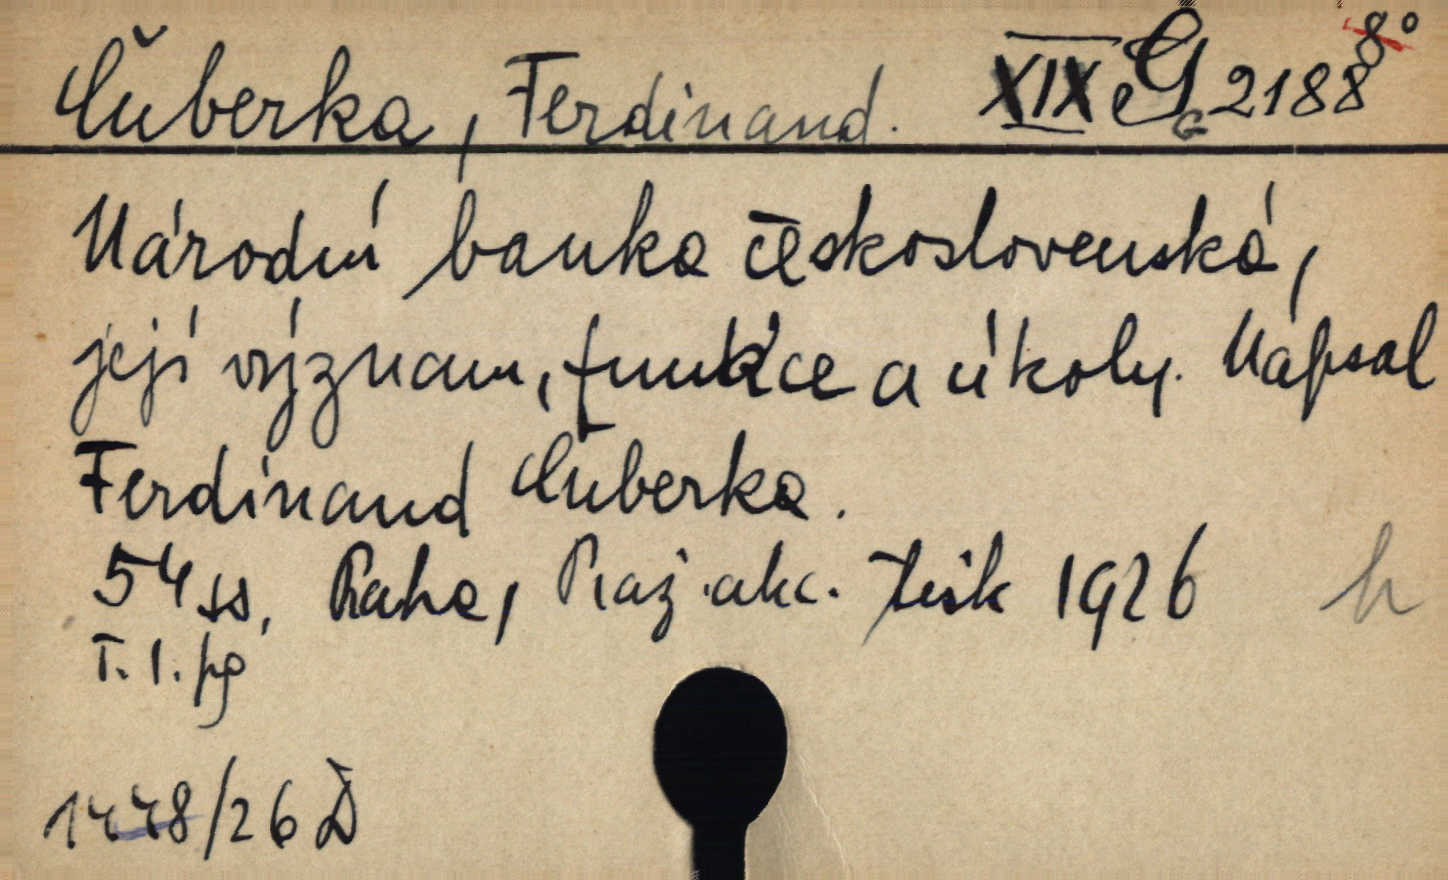 Čuberka, Ferdinand. XIX G 2188 8°
Národní banka československá,
její význam, funkce a úkoly. Napsal
Ferdinand Čuberka.
54 ss, Praha, Praž. akc. tisk 1926 h
T. I.
1478/26 D